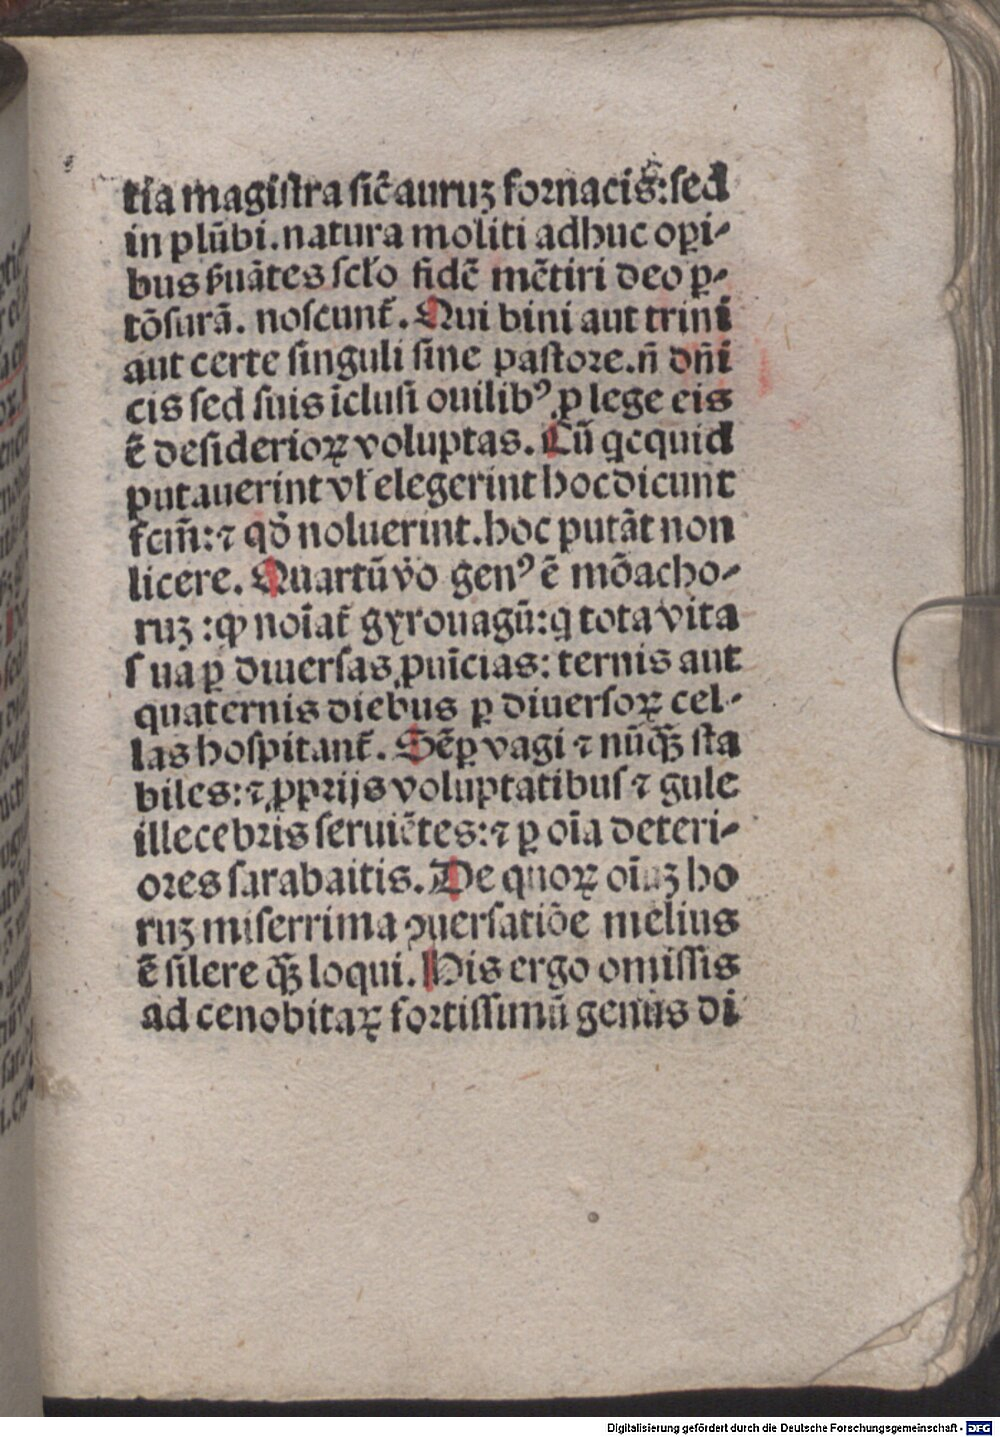 tia magiſtra ſic̄ auruꝫ fornacis: ſed
in plūbi. natura moliti adhuc oꝑi-
bus ẜuātes ſcl̓o fidē mētiri deo ꝑ-
tōſurā. noſcunt᷑. Qui bini aut trini
aut certe ſinguli ſine paſtore. n̄ dn̄i
cis ſed ſuis īcluſi ouilibꝰ ꝓ lege eis
ē deſiderioꝝ voluptas. Cū qcquid
putauerint vl̓ elegerint hoc dicunt
ſcm̄: ⁊ qd̓ noluerint. hoc putāt non
licere. Quartū v̓o genꝰ ē mōacho-
ruꝫ: ꝙ noīat᷑ gyrouagū: q tota vita
ſua ꝑ diuerſas ꝓuīcias: ternis aut
quaternis diebus ꝑ diuerſoꝝ cel-
las hoſpitant᷑. Sēꝑ vagi ⁊ nūꝙꝫ ſta
biles: ⁊ ꝓprijs voluptatibuſ ⁊ gule
illecebris ſeruiētes: ⁊ ꝑ oīa deteri-
ores ſarabaitis. De quoꝝ oīuꝫ ho
ruꝫ miſerrima ꝯuerſatiōe melius
ē ſilere ꝙꝫ loqui. His ergo omiſſis
ad cenobitaꝝ fortiſſimū genus di
Digitalisierung gefördert durch die Deutsche Forschungsgemeinschaft - DFG